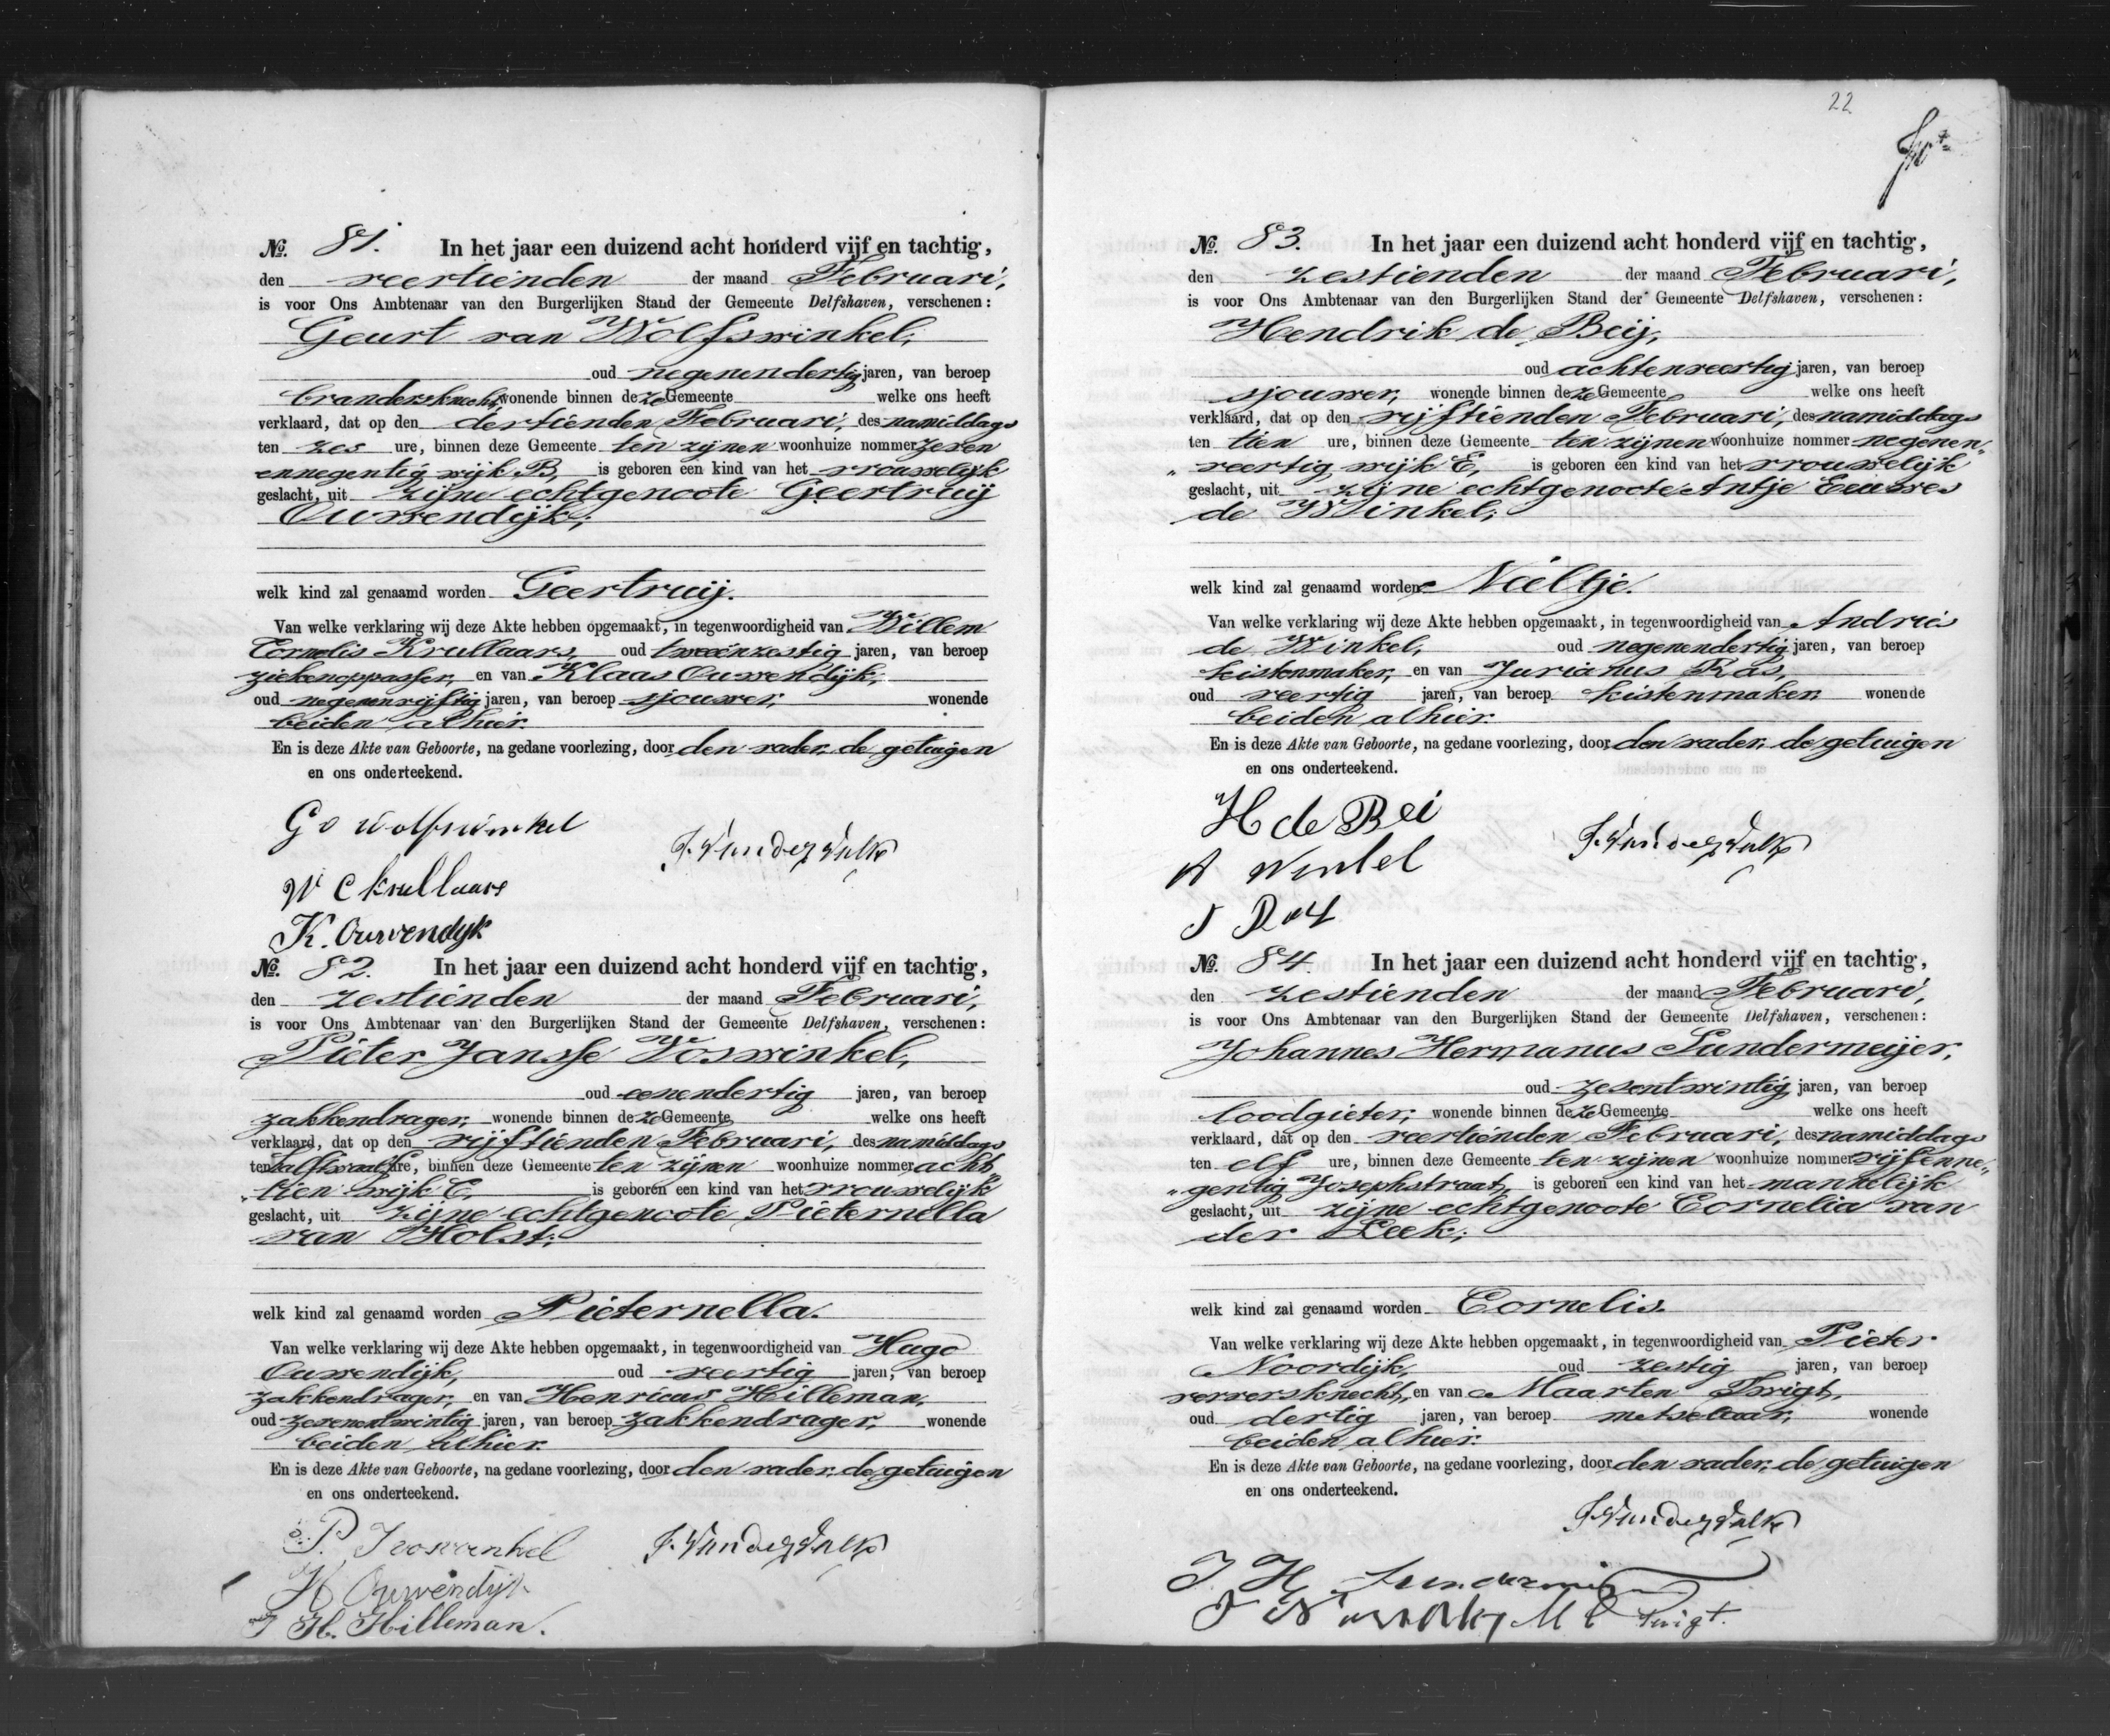 22
No. 81. In het jaar een duizend acht honderd vijf en tachtig,
den veertienden der maand Februari,
is voor Ons Ambtenaar van den Burgerlijken Stand der Gemeente Delfshaven, verschenen:
Geurt van Wolfswinkel,
oud negenendertig jaren, van beroep
brandersknecht, wonende binnen deze Gemeente welke ons heeft
verklaard, dat op den dertienden Februari, des namiddags
ten zes ure, binnen deze Gemeente ten zijnen woonhuize nommer zeven
ennegentig wijk B, is geboren een kind van het vrouwelijk
geslacht, uit zijne echtgenoote Geertruij
Ouwendijk;
welk kind zal genaamd worden Geertruij.
Van welke verklaring wij deze Akte hebben opgemaakt, in tegenwoordigheid van Willem
Cornelis Krullaars, oud tweeënzestig jaren, van beroep
ziekenoppasser, en van Klaas Ouwendijk,
oud negenenvijftig jaren, van beroep sjouwer, wonende
beiden alhier.
En is deze Akte van Geboorte, na gedane voorlezing, door den vader, de getuigen
en ons onderteekend.
G v Wolfswinkel
J. van der Valk
W C Krullaars
K. Ouwendyk
No. 82. In het jaar een duizend acht honderd vijf en tachtig,
den zestienden der maand Februari,
is voor Ons Ambtenaar van den Burgerlijken Stand der Gemeente Delfshaven, verschenen:
Pieter Jansse Voswinkel,
oud eenendertig jaren, van beroep
zakkendrager, wonende binnen deze Gemeente welke ons heeft
verklaard, dat op den vijftienden Februari, des namiddags
ten halftwaalf ure, binnen deze Gemeente ten zijnen woonhuize nommer acht"
"tien wijk C, is geboren een kind van het vrouwelijk
geslacht, uit zijne echtgenoote Pieternella
van Holst;
welk kind zal genaamd worden Pieternella.
Van welke verklaring wij deze Akte hebben opgemaakt, in tegenwoordigheid van Hugo
Ouwendijk, oud veertig jaren, van beroep
zakkendrager, en van Henricus Hilleman,
oud zevenentwintig jaren, van beroep zakkendrager, wonende
beiden alhier.
En is deze Akte van Geboorte, na gedane voorlezing, door den vader, de getuigen
en ons onderteekend.
P. J voswinkel
J. van der Valk
H Ouwendijk
H. Hilleman.
No. 83. In het jaar een duizend acht honderd vijf en tachtig,
den zestienden der maand Februari,
is voor Ons Ambtenaar van den Burgerlijken Stand der Gemeente Delfshaven, verschenen:
Hendrik de Beij,
oud achtenveertig jaren, van beroep
sjouwer, wonende binnen deze Gemeente welke ons heeft
verklaard, dat op den vijftienden Februari, des namiddags
ten tien ure, binnen deze Gemeente ten zijnen woonhuize nommer negenen"
"veertig wijk E, is geboren een kind van het vrouwelijk
geslacht, uit zijne echtgenoote Antje Eeuwes
de Winkel;
welk kind zal genaamd worden Neeltje.
Van welke verklaring wij deze Akte hebben opgemaakt, in tegenwoordigheid van Andries
de Winkel, oud negenendertig jaren, van beroep
kistenmaker, en van Jurianus Ras,
oud veertig jaren, van beroep kistenmaker wonende
beiden alhier.
En is deze Akte van Geboorte, na gedane voorlezing, door den vader, de getuigen
en ons onderteekend.
H de Bei
J. van der Valk
A Winkel
J Ras
No. 84. In het jaar een duizend acht honderd vijf en tachtig,
den zestienden der maand Februari,
is voor Ons Ambtenaar van den Burgerlijken Stand der Gemeente Delfshaven, verschenen:
Johannes Hermanus Sundermeijer,
oud zesentwintig jaren, van beroep
loodgieter, wonende binnen deze Gemeente welke ons heeft
verklaard, dat op den veertienden Februari, des namiddags
ten elf ure, binnen deze Gemeente ten zijnen woonhuize nommer vijfenne"
"gentig Josephstraat, is geboren een kind van het mannelijk
geslacht, uit zijne echtgenoote Cornelia van
der Leek;
welk kind zal genaamd worden Cornelis.
Van welke verklaring wij deze Akte hebben opgemaakt, in tegenwoordigheid van Pieter
Noordijk, oud zestig jaren, van beroep
ververs knecht, en van Maarten Twigt,
oud dertig jaren, van beroep metselaar, wonende
beiden alhier.
En is deze Akte van Geboorte, na gedane voorlezing, door den vader, de getuigen
en ons onderteekend.
J. van der Valk
J. H. Sundermeijer
M Twigt.